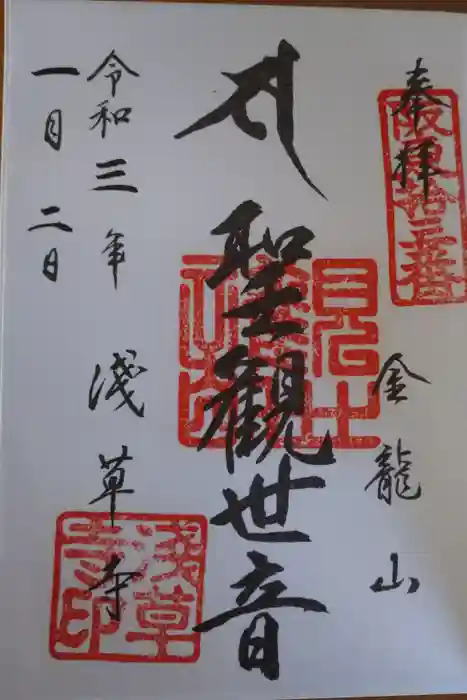 奉拝
阪東拾三番
金龍山
聖観世音
令和三年
淺草寺
一月二日
淺草寺印